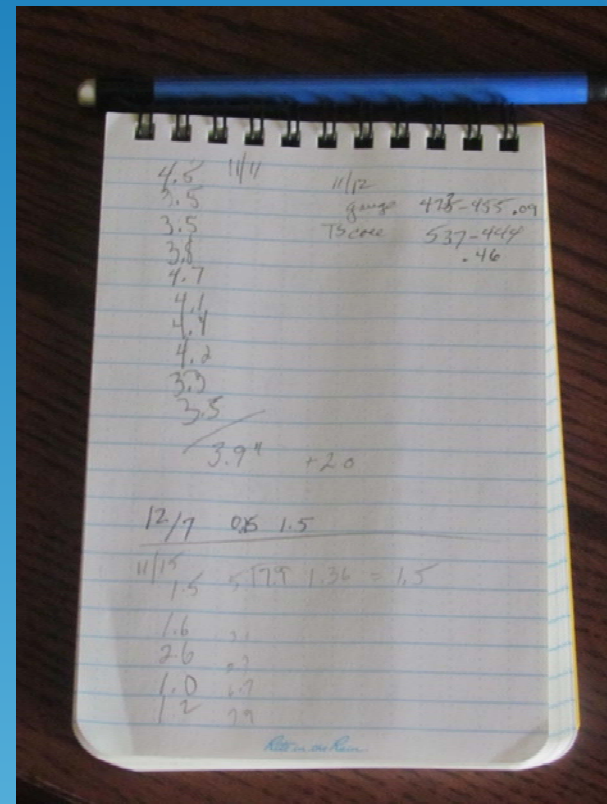 4.5 11/11
3.5
3.5
3.8
4.7
4.1
4.4
4.2
3.3
3.5
3.9" +2.0
11/12
gauge 455 .09
TS core 537-444
.46
12/7 1.5
11/15
1.5 1.36 = 1.5
1.6
2.6
1.0
1.2
Rite in the Rain